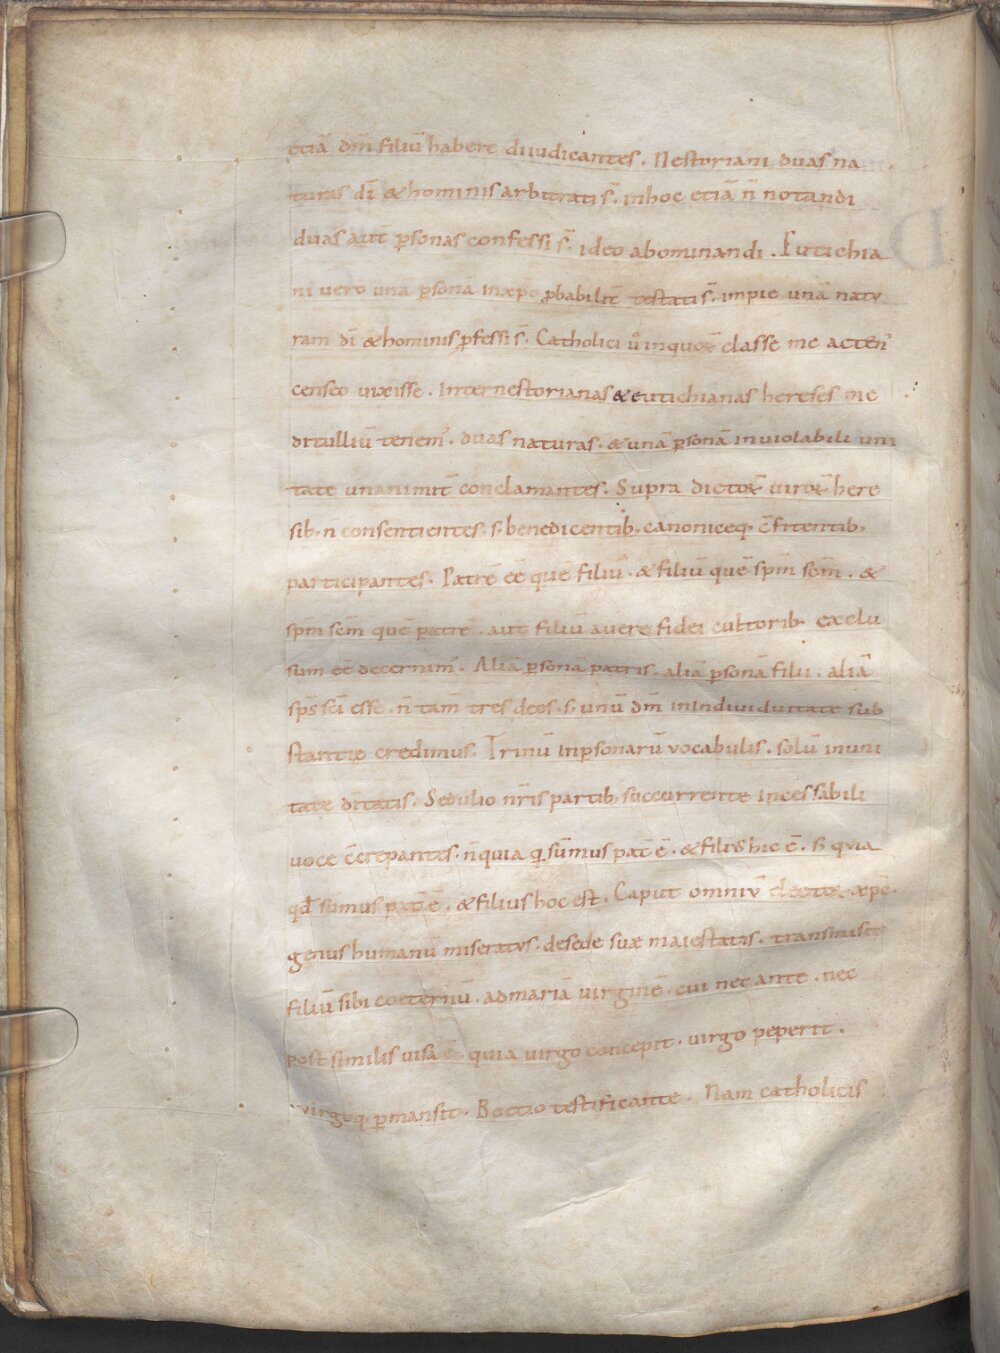 etiā dm̄ filiū habere diiudicantes. Nestoriani duas na
turas dī & hominis arbitrati s̄. in hoc etiā n̄ notandi
duas aut ꝑsonas confessi s̄. ideo abominandi. Eutichia
ni vero una ꝑsonā in xpō ꝓbabilit̄ testati s̄. impie unā natu
ram dī & hominis ꝓfessi s̄. Catholici ů in quoꝝ classe me acten᾽
censeo vixisse. Inter nestorianas & eutichianas hereses me
ditulliū tenem᾽. duas naturas. & unā ꝑsonā inviolabili uni
tate unanimit̄ conclamantes. Supra dictoꝝ viroꝝ here
sib; n̄ consentientes. s; benedicentib; canoniceq; c̄fitentib;
participantes. Patrē eē quē filiū. & filiū quē spm̄ scm̄. &
spm̄ scm̄ quē patrē. aut filiū a vere fidei cultorib; exclu
sum eē decernim᾽. Aliā ꝑsonā patris. aliā ꝑsonā filii. aliā
sps̄ sci esse. n̄ tam̄ tres deos. s; unū dm̄ in individuitate sub
stantie credimus. Trinū in ꝑsonarū vocabulis. solū in uni
tate ditatis. Sedulio nr̄is partib; succurrente incessabili
voce c̄crepantes. n̄ quia q; sūmus pat̄ ē. & filius hic ē. s; quia
qd̄ sūmus pat̄ ē. & filius hoc est. Caput omniū electoꝝ xpē.
genus humanū miseratus. de sede suæ maiestatis. transmisit
filiū sibi coeternū. ad mariā virginē. cui nec ante. nec
post similis visa ē. quia virgo concepit. virgo peperit.
virgoq; ꝑmansit. Boetio testificante. Nam catholicis